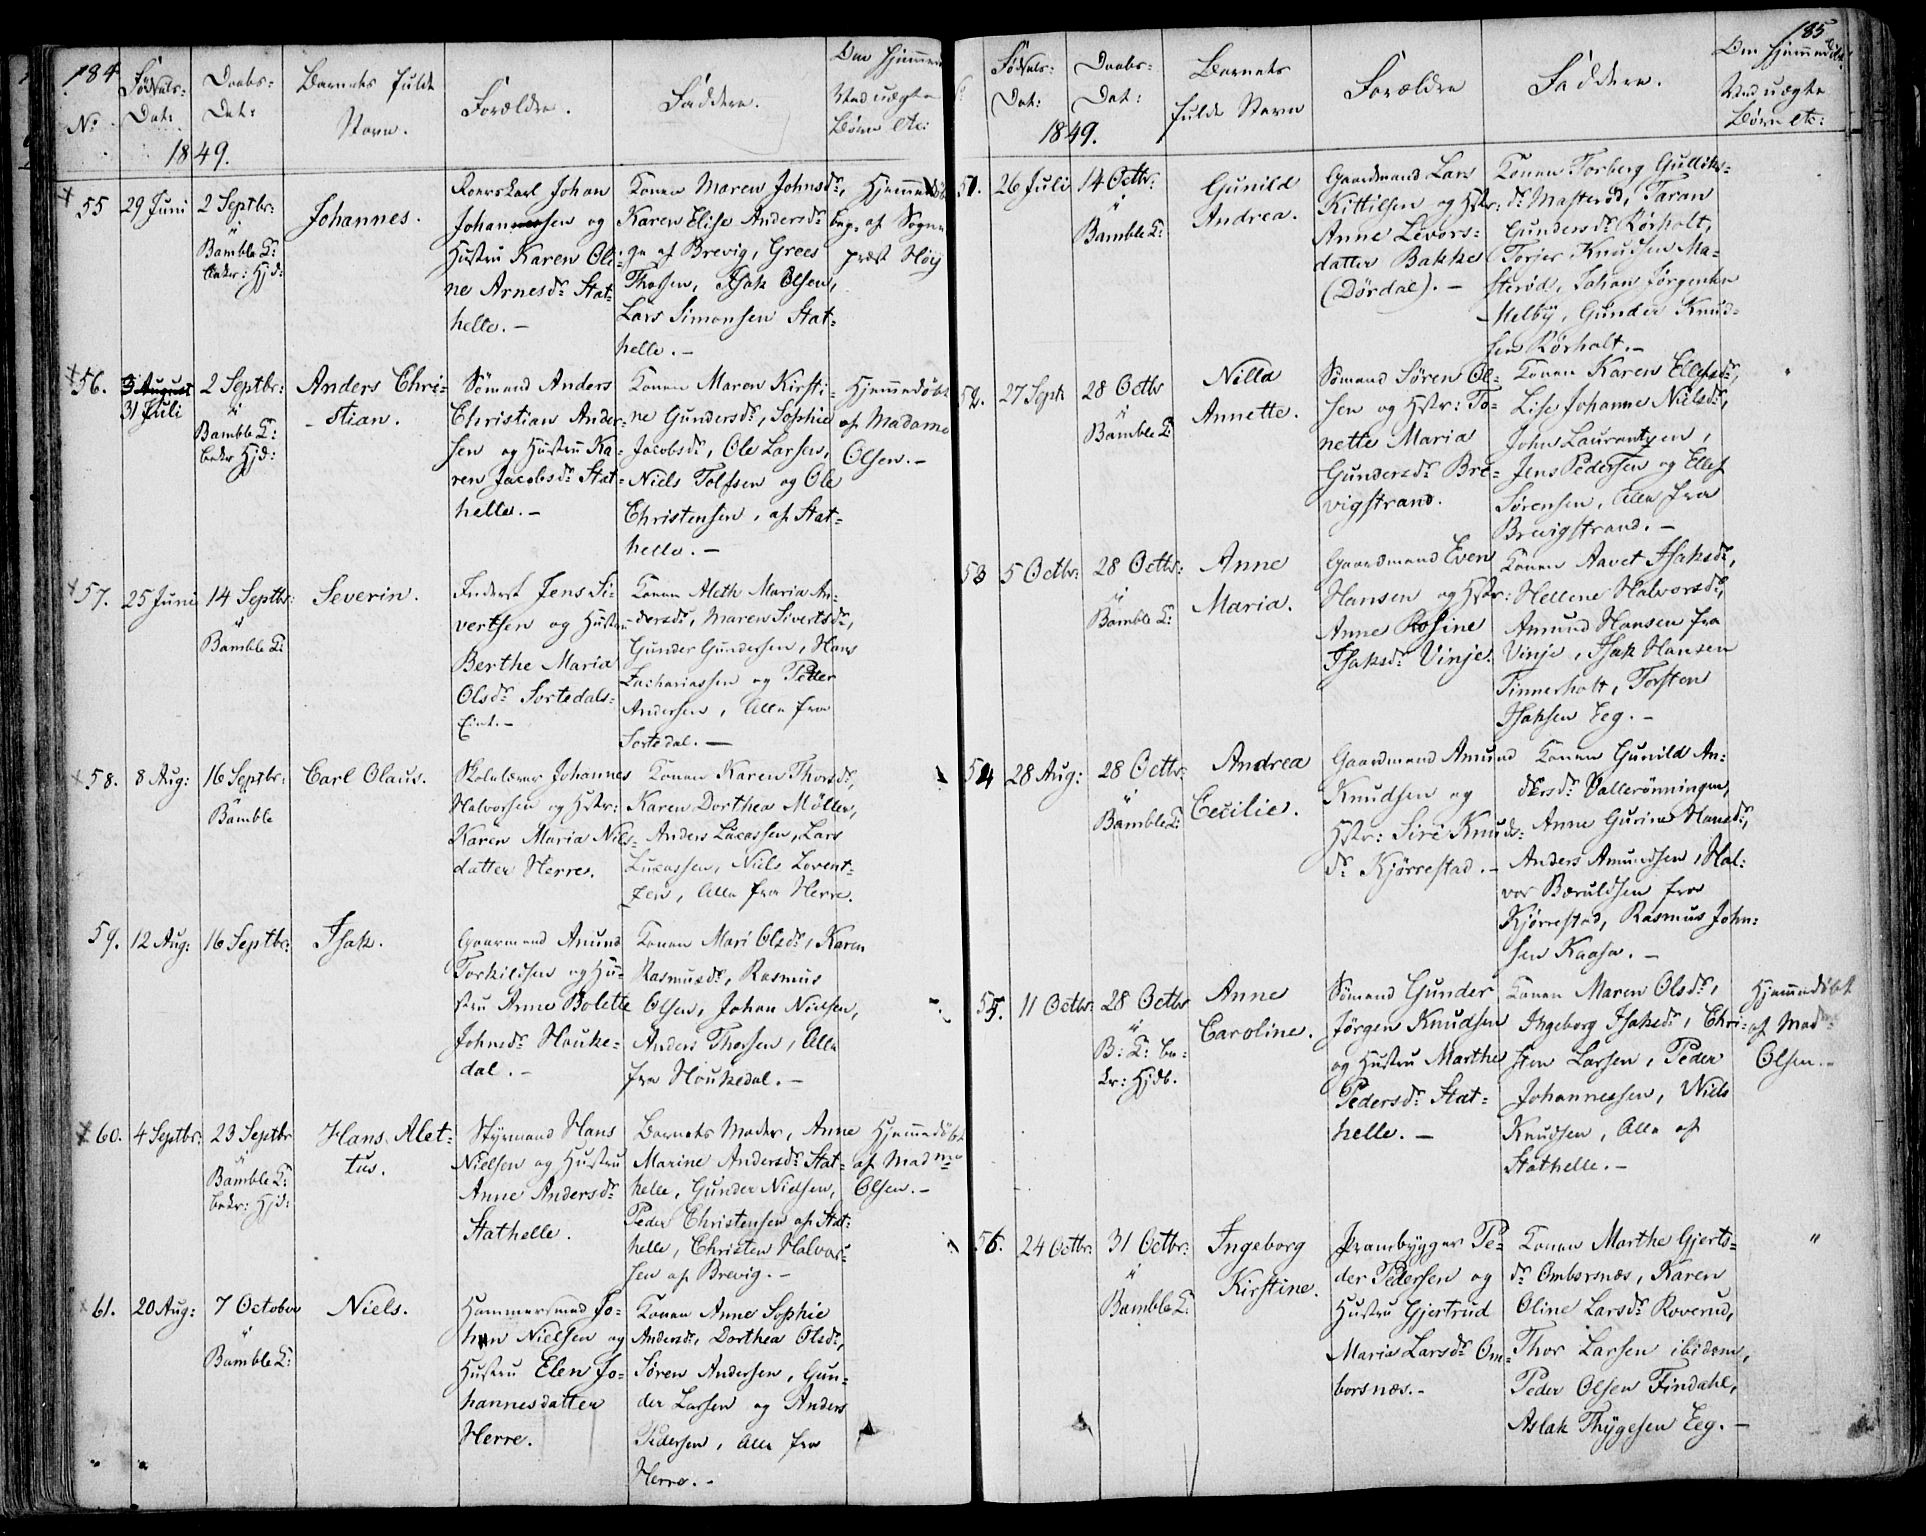 184
No
Fødsels-
Dat:
Daabs-
Dat:
1849.
Barnets fulde
Navn.
Forældre.
Faddere.
Om Hjemmed
Ved uægte
Børn etc:
55
29 Juni
2 Septbr:
"
Bamble K:
bekr: Hjd:
Johannes.
Roerskarl Johan
Johannesen og
Hustru Karen Oli-
ne Arnesdr Stat-
helle.-
Konen Maren Johnsdr,
Karen Elise Andersdr
ge af Brevig, Grees
Thossen, Isak Olsen,
Lars Simonsen Stat-
helle.-
Hjemmedøbt
af Sogne
præst Höy
56.
5 August
31 Juli
2 Septbr:
"
Bamble K:
bekr Hjd:
Anders Chri-
stian.
Sømand Anders
Christian Ander-
sen og Hustru Ka-
ren Jacobsdr Stat-
helle.-
Konen Maren Kirsti-
ne Gundersdr, Sophie
Jacobsdr, Ole Larsen,
Niels Tolfsen og Ole
Christensen, af Stat-
helle.-
Hjemmedøbt
af Madame
Olsen.-
57.
25 Juni
14 Septbr:
"
Bamble K:
Severin.
Inderst Jens Si-
vertsen og Hustru
Berthe Maria
Olsdr Sortedals-
Eiet.-
Konen Aleth Maria An-
dersdr, Maren Sivertsdr,
Gunder Gundersen, Hans
Zachariassen og Petter
Andersen, Alle fra
Sortedal.-
58.
8 Aug:
16 Septbr:
"
Bamble
Carl Olaus.
Skolelærer Johannes
Halvorsen og Hstr:
Karen Maria Nils-
datter Herre.
Konen Karen Thorsdr,
Karen Dorthea Møller,
Anders Lucassen, Lars
Lucassen, Niels Lorent-
zen, Alle fra Herre.
59.
12 Aug:
16 Septbr:
Isak.
Gaarmand Anund
Torkildsen og Hu-
stru Anne Bolette
Johnsdr Houke-
dal.-
Konen Mari Olsdr, Karen
Rasmusdr, Rasmus
Olsen, Johan Nielsen,
Anders Thorsen, Alle
fra Houkedal.-
60.
4 Septbr:
23 Septbr
"
Bamble K:
bekr: Hjd:
Hans Alet-
tus.
Styrmand Hans
Nielsen og Hustru
Anne Andersdr
Stathelle.
Barnets Moder, Anne
Marine Andersdr Stat-
helle, Gunder Nielsen,
Peder Christensen af Stat-
helle, Christen Halvor-
sen af Brevig.-
Hjemmedøbt
af Madme
Olsen.-
61.
20 Aug:
7 October
"
Bamble K:
Niels.
Hammersmed Jo-
han Nielsen og
Hustru Elen Jo-
hannesdatter
Herre.
Konen Anne Sophie
Andersdr, Dorthea Olsdr,
Søren Andersen, Gun-
der Larsen og Anders
Pedersen, Alle fra
Herre.-
185
Fødsels-
Dat:
Daabs-
Dat:
1849.
Barnets
fulde Navn
Forældre
Faddere.
Om Hjemmedøbt
Ved uægte
Børn etc:
51.
26 Juli
14 Octbr:
"
Bamble K:
Gunild
Andrea.
Gaardmand Lars
Kittilsen og Hstr:
Anne Levors-
datter Bakke
(Dørdal).-
Konen Torberg Gulliks-
dr Masterød, Taran
Gundersdr Rørholt,
Torjer Knudsen Ma-
sterød, Johan Jørgensen
Melby, Gunder Knud-
sen Rørholt.-
52.
27 Sept
28 Octbr
"
Bamble K:
Nilla
Annette.
Sømand Søren Ol-
sen og Hstr: To-
nette Maria
Gundersdr Bre-
vigstrand.
Konen Karen Ellefsdr,
Lise Johanne Nielsdr,
John Laurantzen,
Jens Pedersen og Ellef
Sørensen, Alle fra
Brevigstrand.-
"
53
5 Octbr:
28 Octbr:
"
Bamble K:
Anne
Maria.
Gaardmand Even
Hansen og Hstr:
Anne Rosine
Isaksdr Vinje.
Konen Aavet Isaksdr,
Hellene Halvorsdr,
Amund Hansen fra
Vinje, Isak Hansen
Tinnerholt, Torsten
Isaksen Eeg.-
54
28 Aug:
28 Octbr:
"
Bamble K:
Andrea
Cecilie.
Gaardmand Amund
Knudsen og
Hstr: Siri Knuds-
dr Kjørrestad.-
Konen Gunild An-
dersdr Vallerønningen,
Anne Gurine Hansdr,
Anders Amundsen, Hal-
vor Bæruldsen fra
Kjørrestad, Rasmus John-
sen Kaasa.-
55.
11 Octbr:
28 Octbr
"
B: K: be-
kr: Hjdb.
Anne
Caroline.
Sømand Gunder
Jørgen Knudsen
og Hustru Marthe
Pedersdr Stat-
helle.-
Konen Maren Olsdr,
Ingeborg Isaksdr, Chri-
sten Larsen, Peder
Johannesen, Niels
Knudsen, Alle af
Stathelle.-
Hjemmedøbt
af Madme
Olsen.-
56.
24 Octbr:
31 Octbr:
"
Bamble K:
Ingeborg
Kirstine.
Prambygger Pe-
der Pedersen og
Hustru Gjertrud
Maria Larsdr Om-
borsnæs.-
Konen Marthe Gjerts-
dr Omborsnæs, Karen
Oline Larsdr Roverud,
Thor Larsen ibidem,
Peder Olsen Findahl,
Aslak Thygesen Eeg.-
"